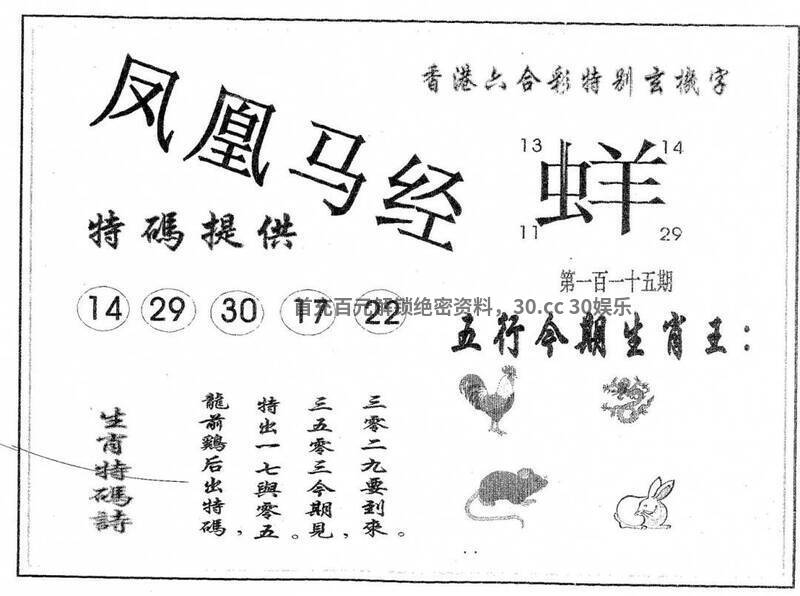 凤凰马经
特碼提供
14 29 30 17 22
香港六合彩特别玄機字
13 14
蛘
11 29
第一百一十五期
首充百元解锁绝密资料，30.cc 30娱乐
五行今期生肖王：
生肖特碼詩
龍前鷄后出特碼，
特出一七與零五。
三五零三今期見，
三零二九要到來。